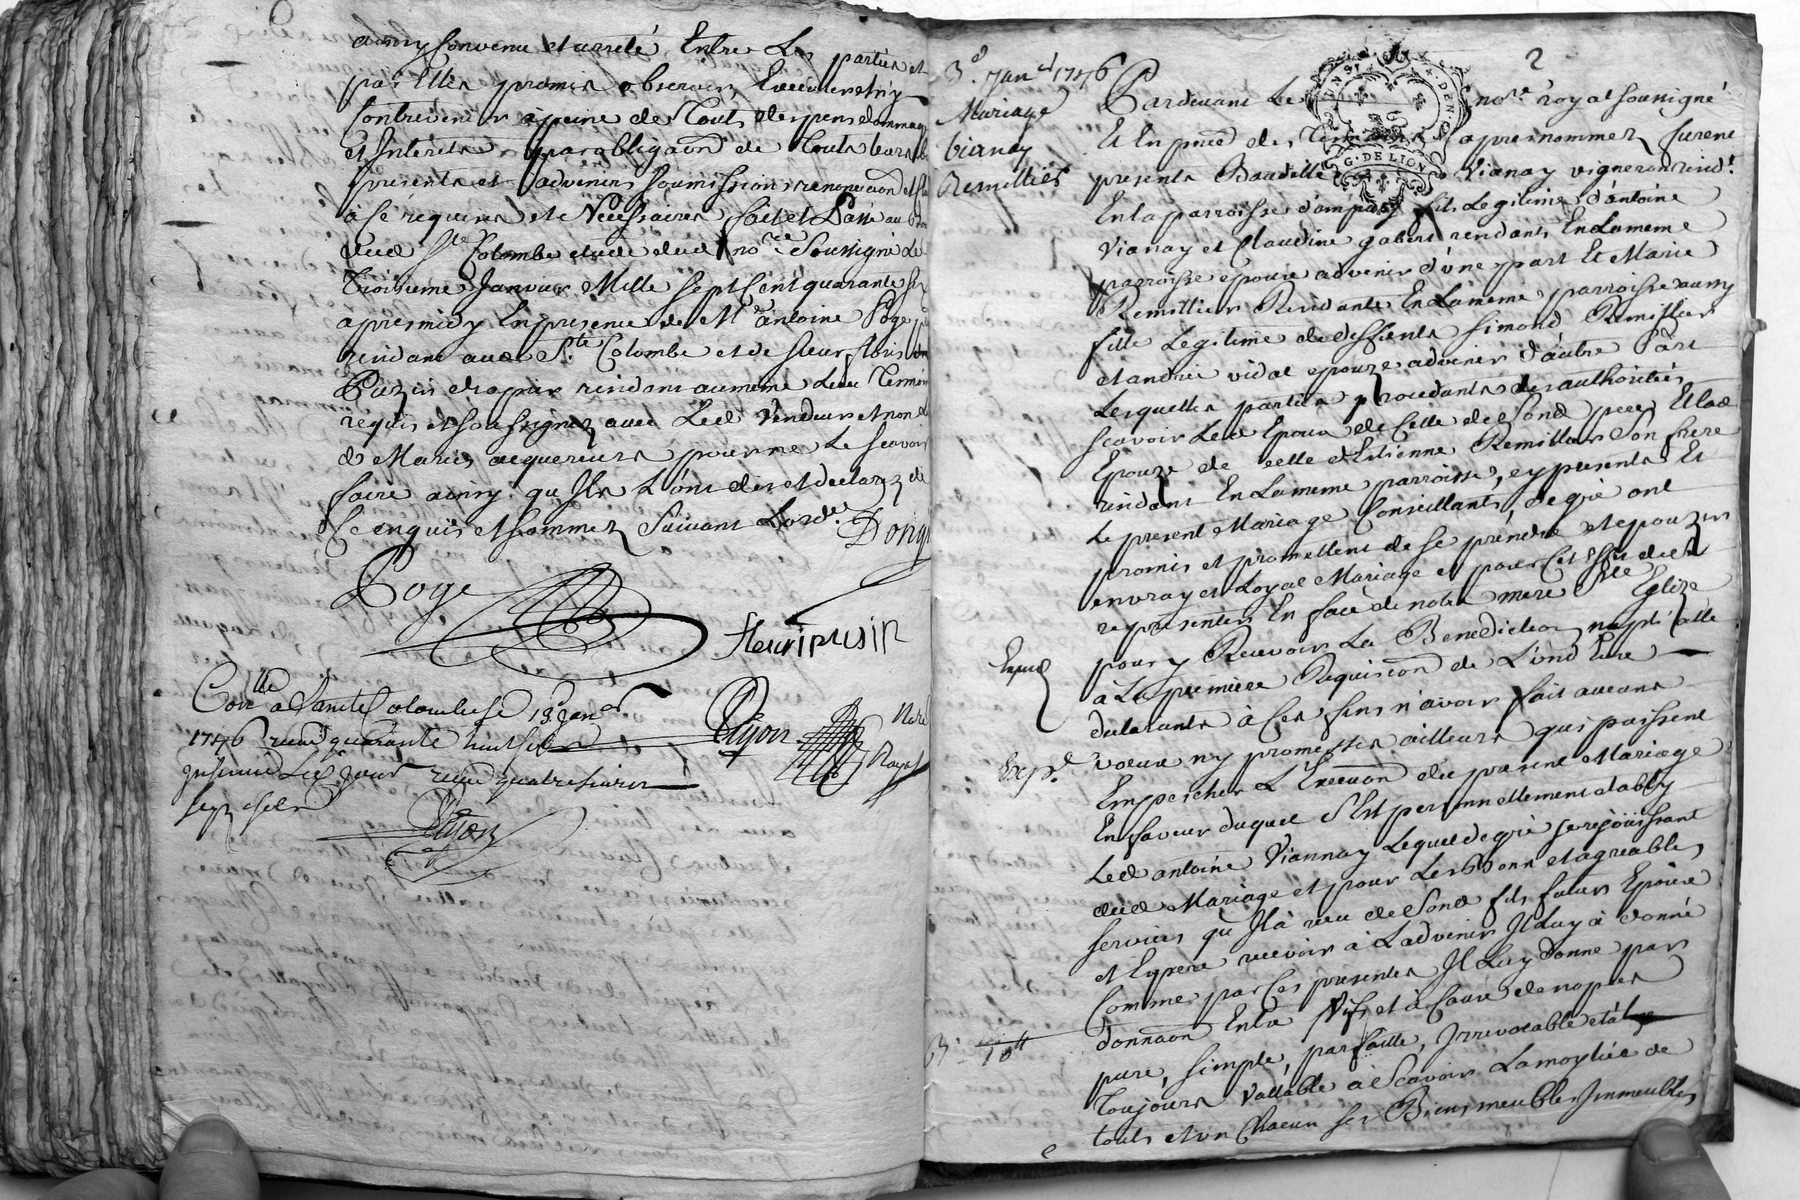 ainsy convenu et arreté Entre Les parties et
par Elles promis observer Executer et n'y
Contrevenir a peine de Touts despens dommag
et Interets par obligaon de Touts leurs b
presents et advenir soumissions renonciaon et
à ce requises et Necessaires fait et Passé au
dud Ste Colombe etude dud nore Soussigné Le
Troisieme Janvier Mille sept Cent quarante six
apres midy En presence de Mr antoine Poge
residant aud Ste Colombe et de sieur
Puzin drapier residant au meme Lieu Temoin
requis et soussignez avec Led Vendeur et non
d Maries acquereurs pour ne Le scavoir
faire ainsy qu Ils L'ont dit et declarez de
Ce enquis et sommez Suivant L'orde Dong
Poge
fleuri pusin
Conlle a Sainte Colombe le 13 Janer
1746 receu quarante huit sols
Insinué Led Jour receu quatre livres
sept sols
Dijon Nore Royal
Dijon
2
3e Janer 1746
Mariage
Vianay
Remillier
G. DE LION
Pardevant Le nore royal soussigné
Et En pnce des Temoins apres nommez furent
presents Baudille Vianay vigneron residt
En la parroisse d'ampuis fils Legitime d'antoine
Vianay et Claudine gabert residants En La meme
parroisse epoux advenir d'une part Et Marie
Remillier Residante En La meme parroisse aussy
fille Legitime de deffunts simond Remillier
et andrée vidal epouze advenir d'autre Part
Lesquelles parties procedants des authorités
scavoir Led Epoux de Celle de Sond pere Et Lad
Epouze de celle d'Estienne Remillier Son frere
residant En La meme parroisse, cy presents Et
Le present Mariage Conseillants, de gré ont
promis et promettent de se prendre et epouzer
en vray et Loyal Mariage et pour Cet effet de se
representer En face de notre mere Ste Eglize
pour y Recevoir La Benediction nuptialle
à La premiere Requisition de L'und Eux
declarants à Ces fins n'avoir fait aucuns
voeux ny promesses ailleurs qui puissent
Empescher L'Execuon du present Mariage
En faveur duquel S'Est personnellement etably
Led antoine Viannay Lequel de gré se rejoüissant
dud Mariage et pour Les Bons et agreables
services qu Il à receu de Sond fils futur Epoux
et Espere recevoir à L'advenir Il Luy à donné
Comme par Ces presentes Il Luy donne par
donnaon Entre Vifs et à Cause de nopces
pure, simple, parfaitte, Irrevocable et à
Toujours Vallable à Scavoir La moytiée de
touts et un Chacun ses Biens meubles Immeubles
Expd
Expd